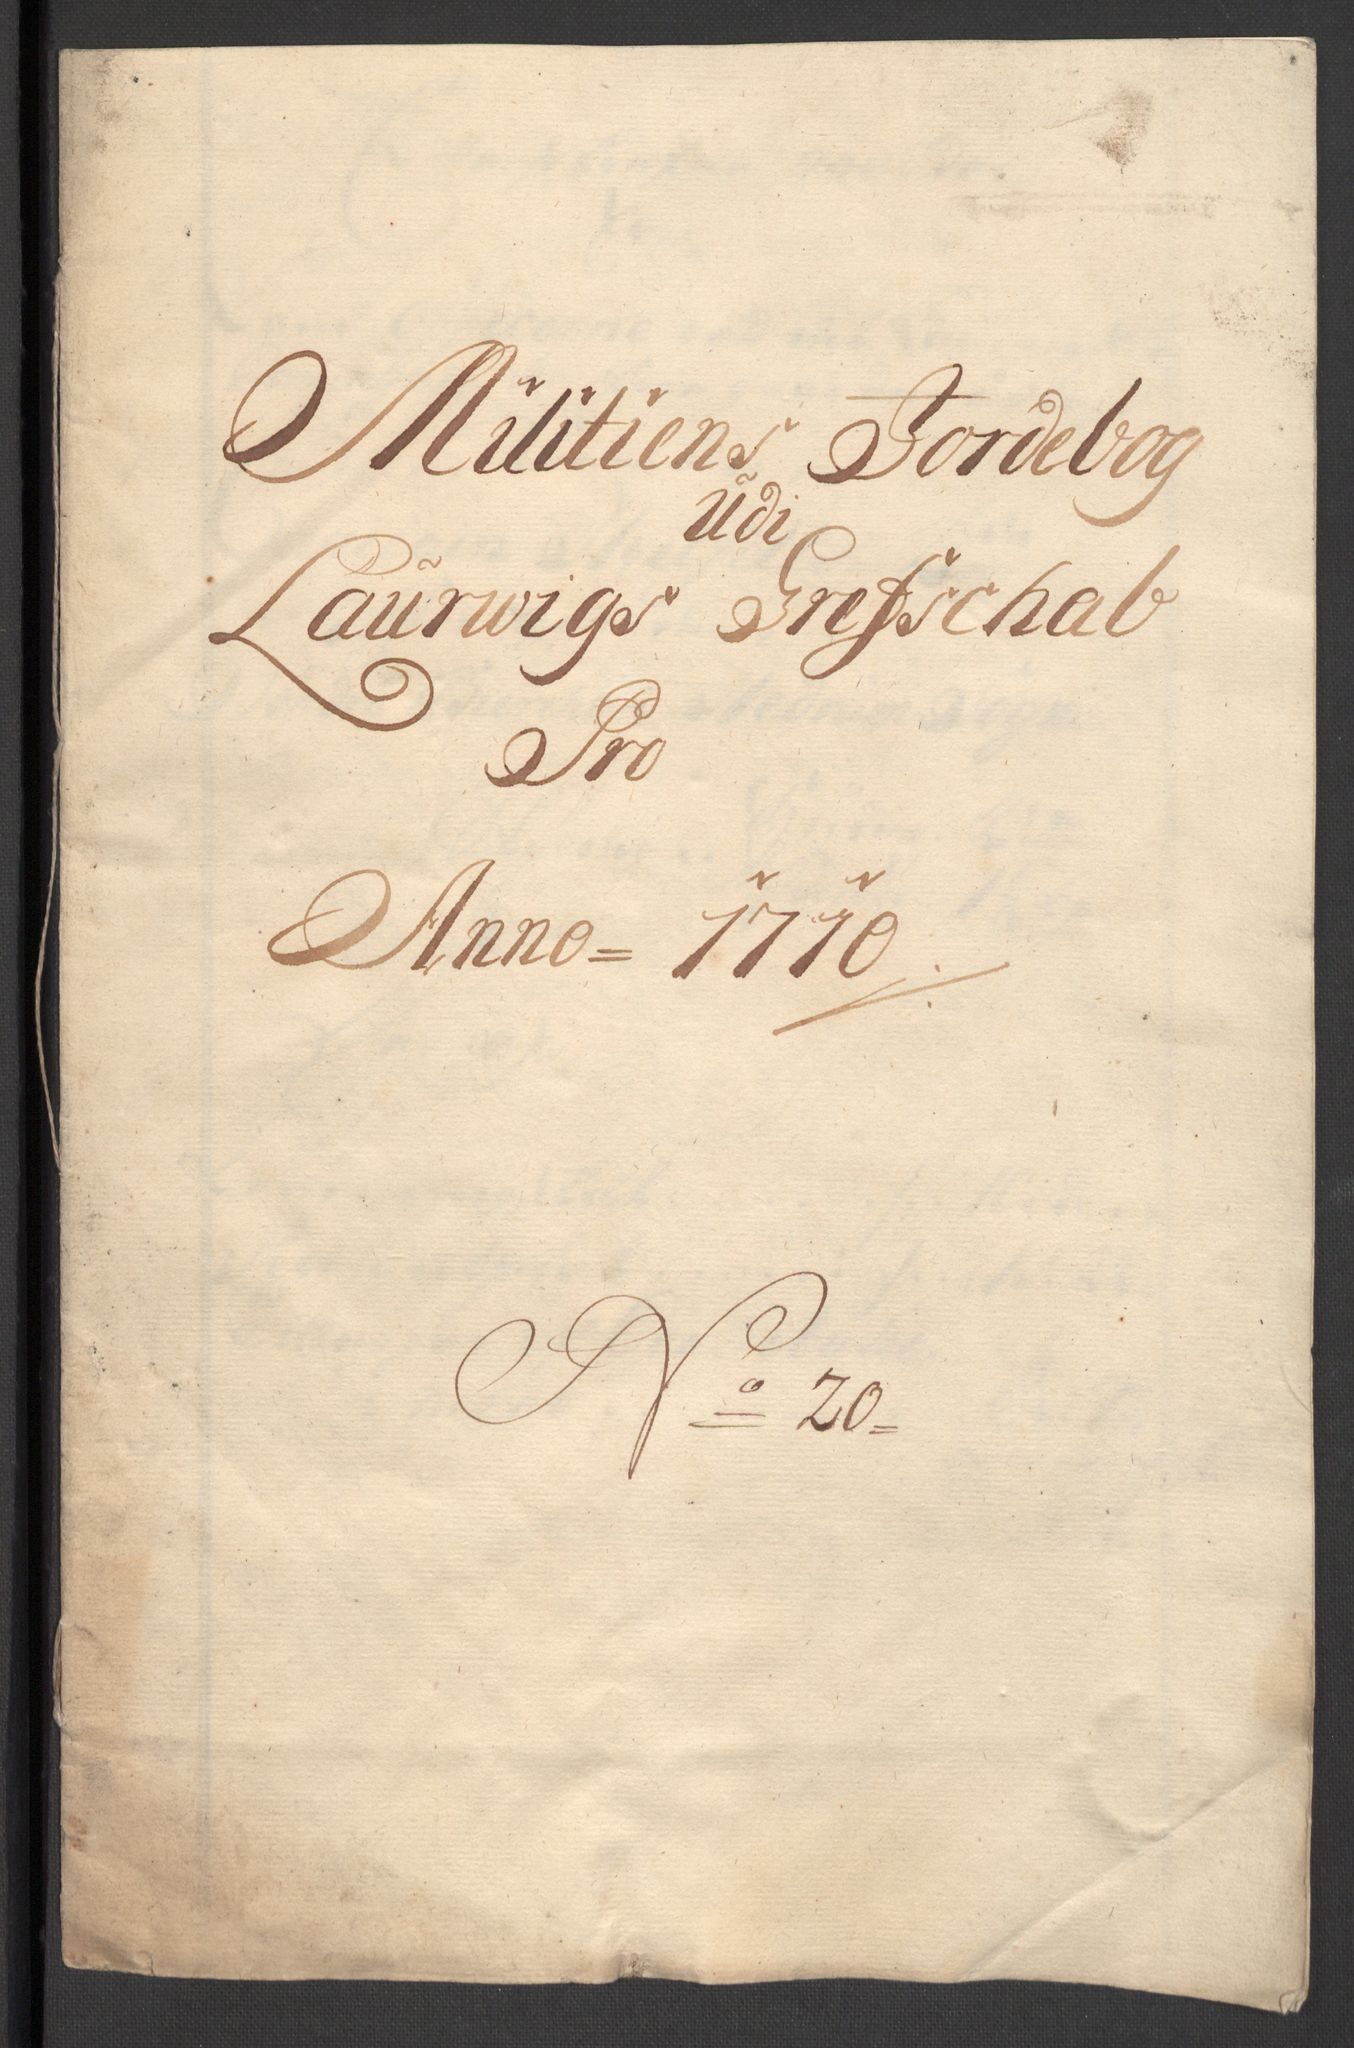 Militiens Jordebog
Udi
Laurwigs Grefschab
Pro
Anno= 1710
No 20=